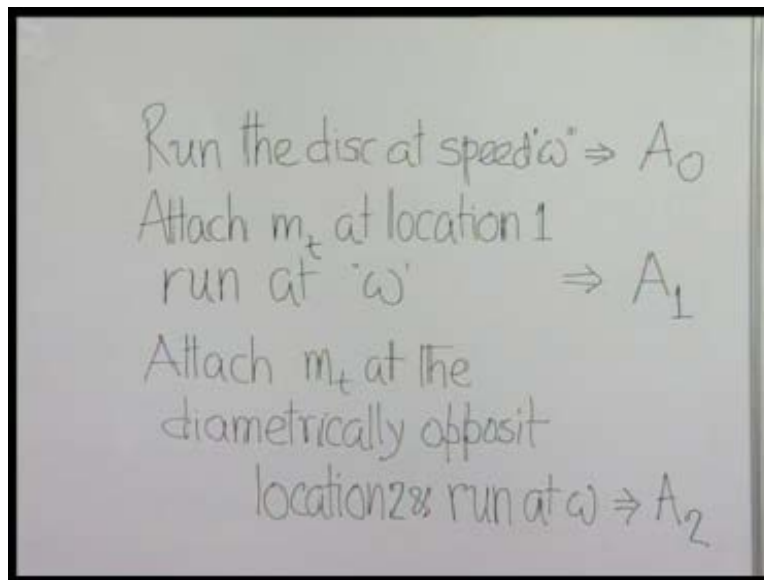 Run the disc at speed "ω" ⇒ A₀
Attach mₜ at location 1
run at 'ω' ⇒ A₁
Attach mₜ at the
diametrically opposit
location 2 & run at ω ⇒ A₂